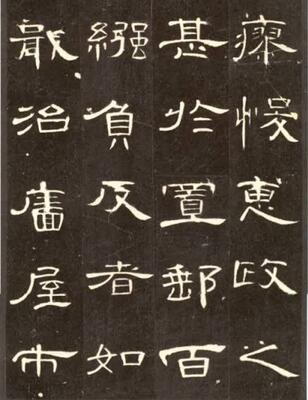 瘳悛惠政之
甚於置郵百
繦負反者如
戢治廧屋市